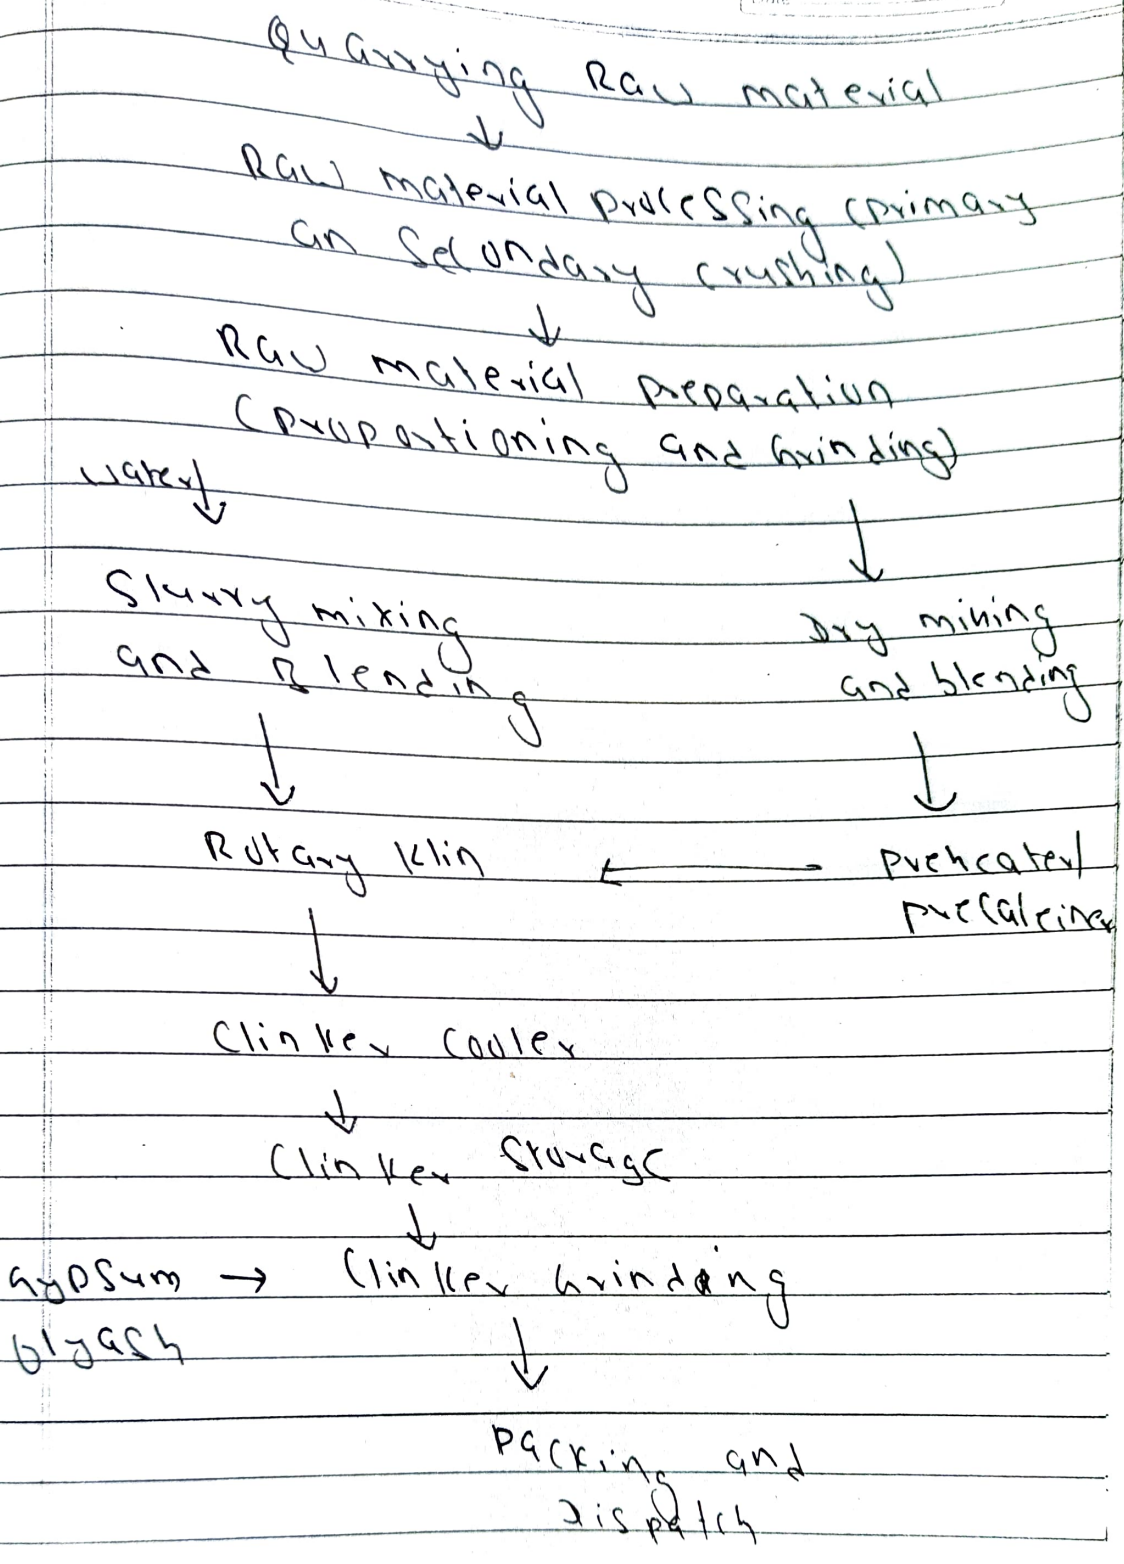 Quarrying Raw material
↓
Raw material processing (primary
an Secondary crushing)
↓
Raw material preparation
(proportioning and Grinding)
water ↓
↓
Slurry mixing
and Blending
Dry mixing
and blending
↓
↓
Rotary Klin ← preheater/
precalciner
↓
Clinker Cooler
↓
Clinker Storage
↓
Gypsum → Clinker Grinding
flyash
↓
Packing and
Dispatch